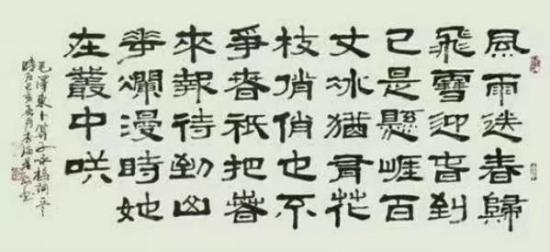 風雨送春歸
飛雪迎春到
已是懸崖百
丈冰猶有花
枝俏俏也不
爭春祇把春
來報待到山
華爛漫時她
在叢中咲
毛澤東卜算子詠梅詞